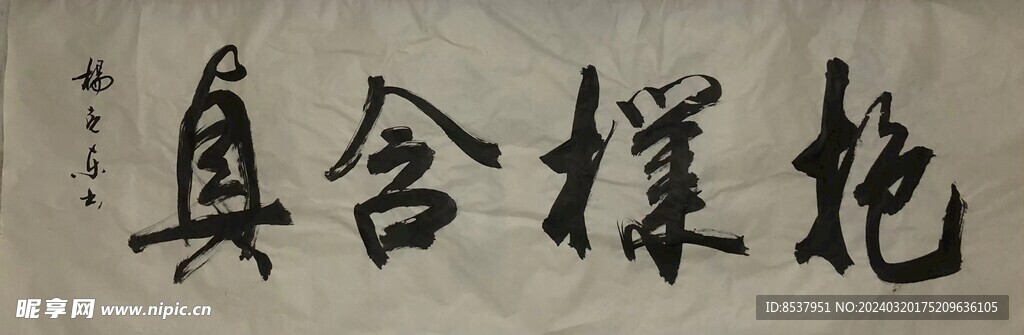 抱樸含真
楊克東书
昵享网 www.nipic.cn
ID:8537951 NO:20240320175209636105